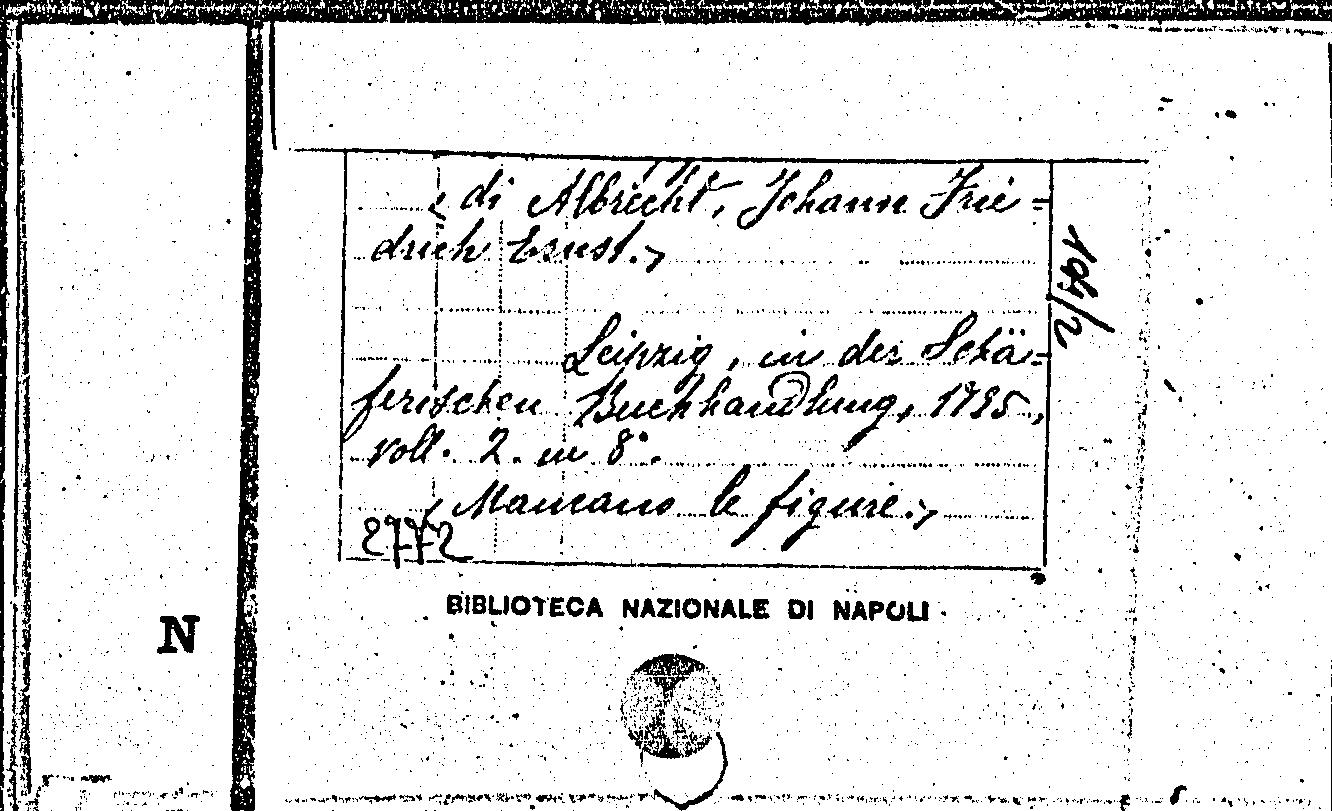 < di Albrecht, Johann Frie=
drich Ernst.>
Leipzig, in der Schä=
ferischen Buchhandlung, 1795,
voll. 2. in 8°.
< Mancano le figure.>
2772
BIBLIOTECA NAZIONALE DI NAPOLI
N